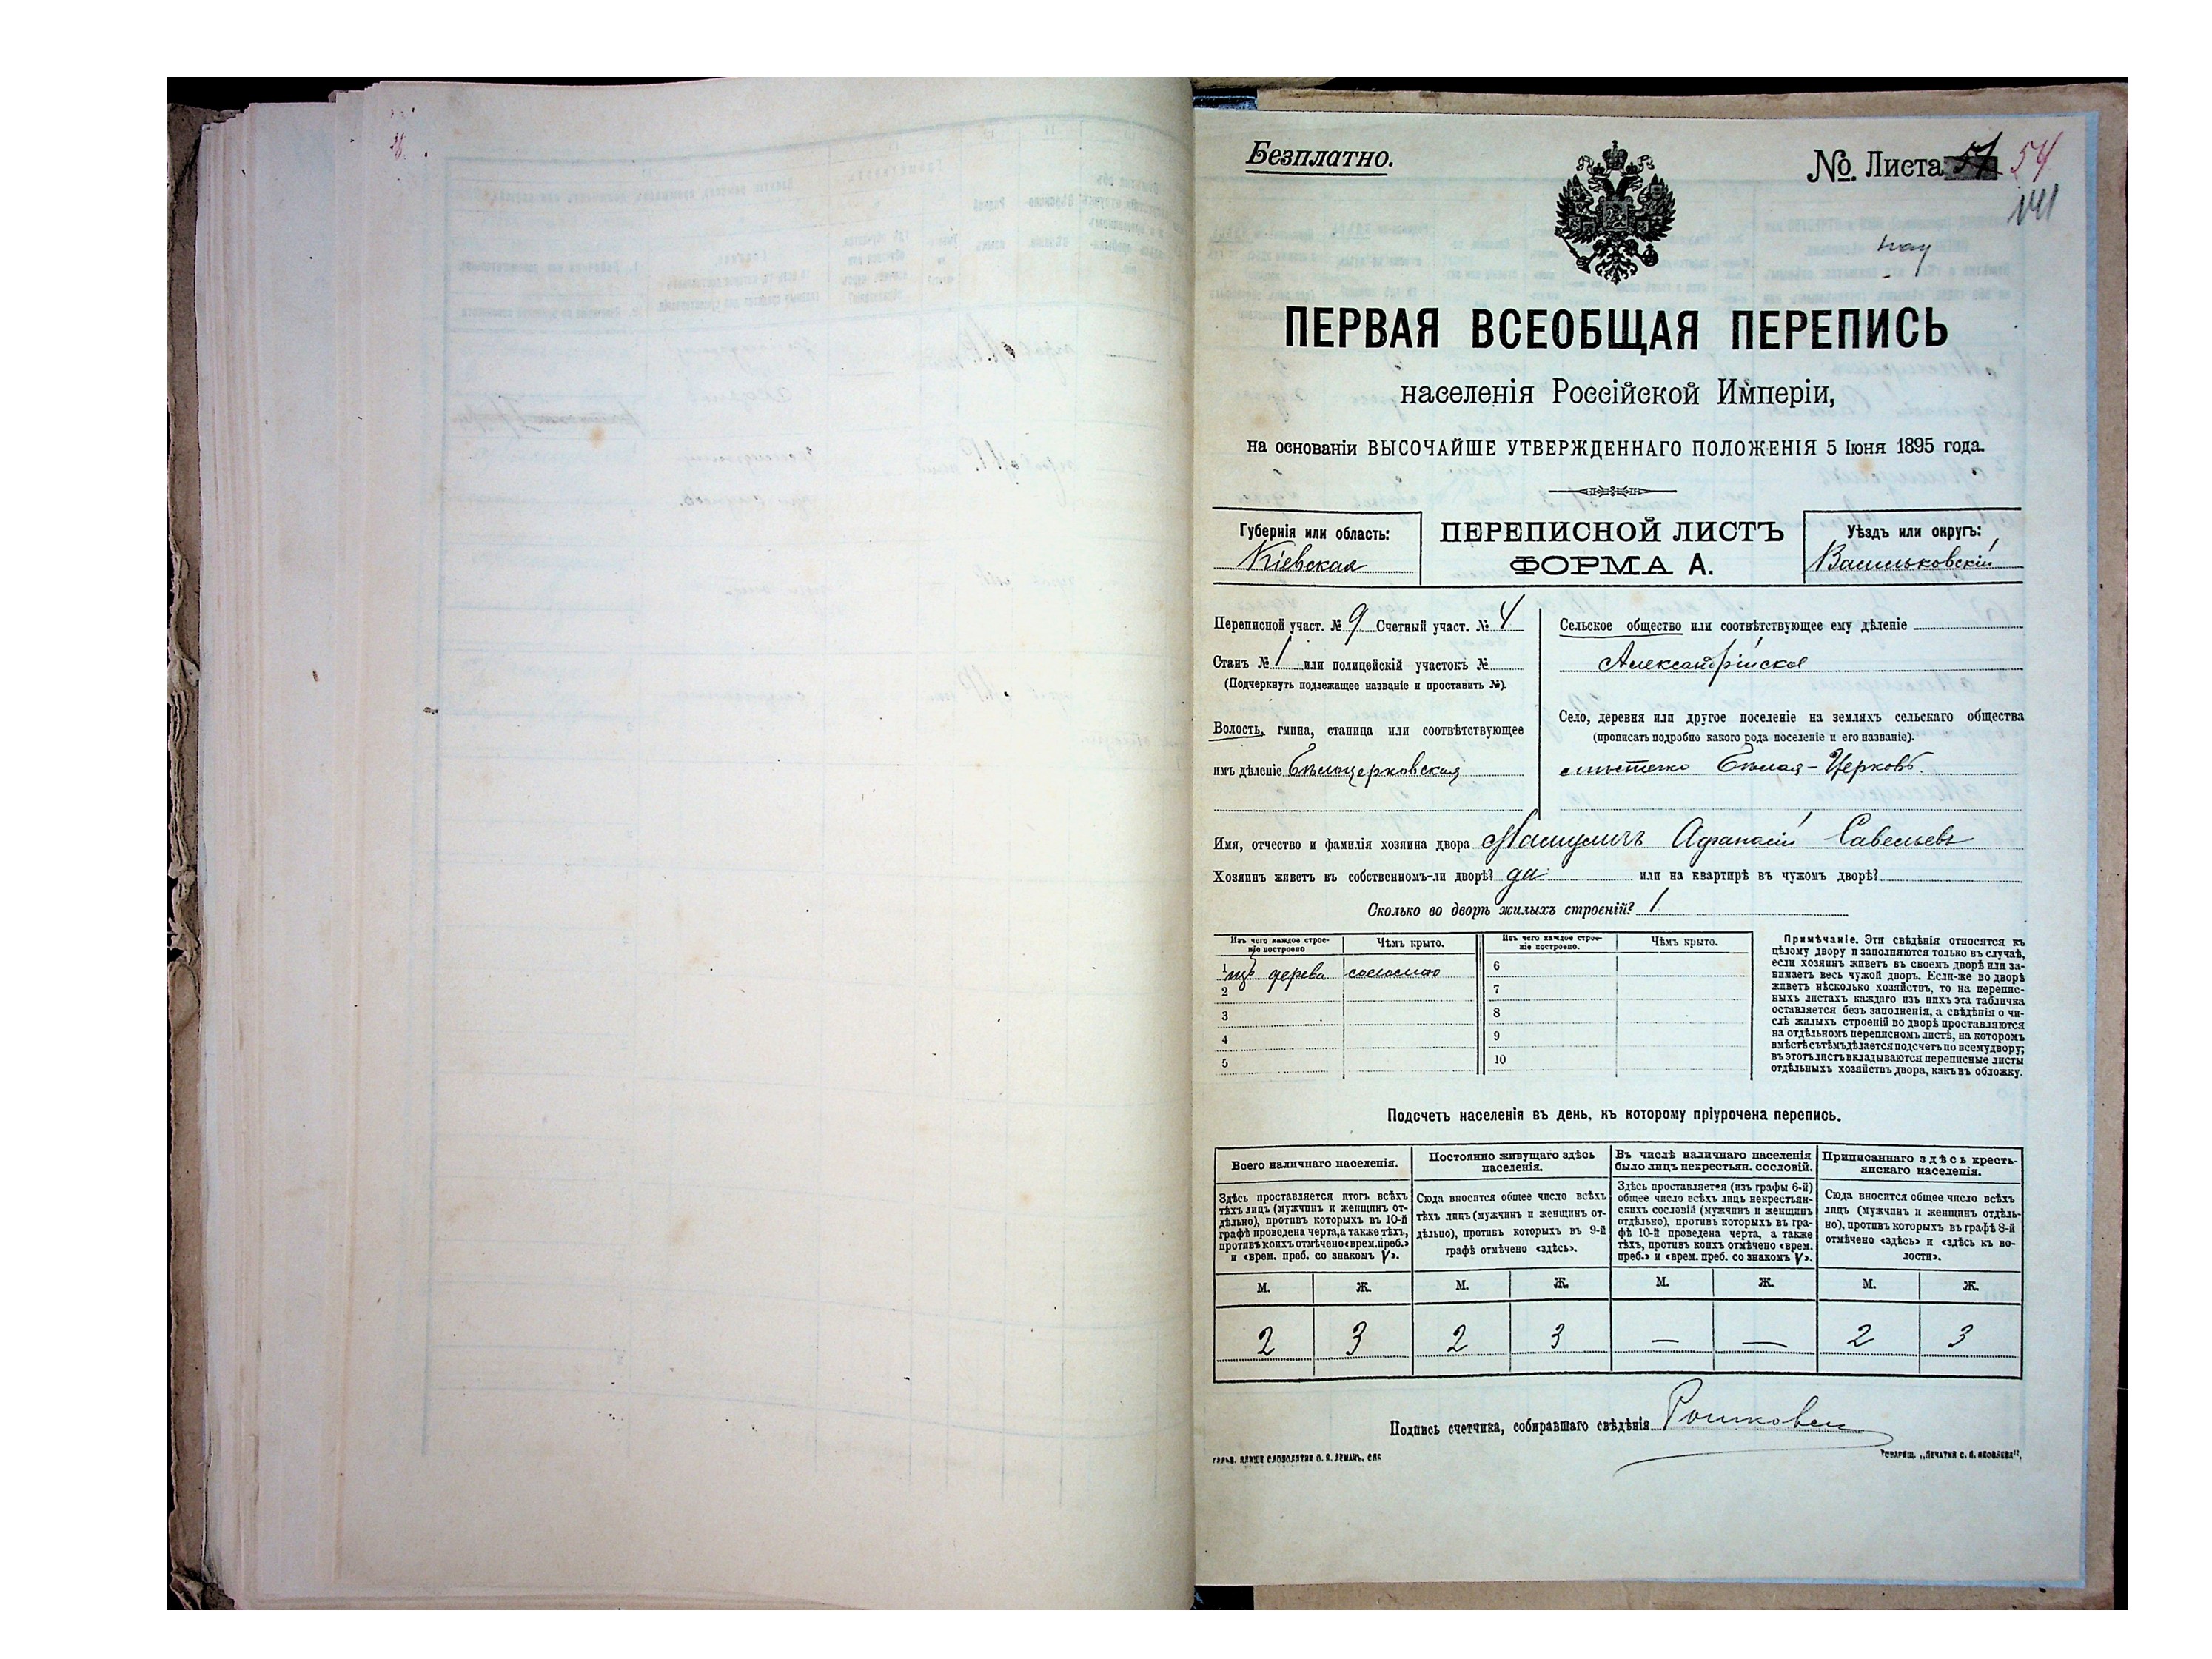 Безплатно.
№. Листа 54
ПЕРВАЯ ВСЕОБЩАЯ ПЕРЕПИСЬ
населенія Россійской Имперіи,
на основаніи ВЫСОЧАЙШЕ УТВЕРЖДЕННАГО ПОЛОЖЕНІЯ 5 Іюня 1895 года.
Губернія или область:
Кіевская
ПЕРЕПИСНОЙ ЛИСТЪ
ФОРМА А.
Уѣздъ или округъ:
Васильковскій
Переписной участ. № 9 Счетный участ. № 4
Станъ № 1 или полицейскій участокъ №
(Подчеркнуть подлежащее названіе и проставить №).
Волость, гмина, станица или соотвѣтствующее
имъ дѣленіе Бѣлоцерковская
Сельское общество или соотвѣтствующее ему дѣленіе
Александрійское
Село, деревня или другое поселеніе на земляхъ сельскаго общества
(прописать подробно какого рода поселеніе и его названіе).
мѣстечко Бѣлая-Церковь.
Имя, отчество и фамилія хозяина двора Афанасій Савельевъ
Хозяинъ живетъ въ собственномъ-ли дворѣ? да или на квартирѣ въ чужомъ дворѣ?
Сколько во дворѣ жилыхъ строеній? 1
Изъ чего каждое строе-
ніе построено
Чѣмъ крыто.
Изъ чего каждое строе-
ніе построено.
Чѣмъ крыто.
1 изъ дерева соломою
2
3
4
5
6
7
8
9
10
Примѣчаніе. Эти свѣдѣнія относятся къ
цѣлому двору и заполняются только въ случаѣ,
если хозяинъ живетъ въ своемъ дворѣ или за-
нимаетъ весь чужой дворъ. Если-же во дворѣ
живетъ нѣсколько хозяйствъ, то на перепис-
ныхъ листахъ каждаго изъ нихъ эта табличка
оставляется безъ заполненія, а свѣдѣнія о чи-
слѣ жилыхъ строеній во дворѣ проставляются
на отдѣльномъ переписномъ листѣ, на которомъ
вмѣстѣ съ тѣмъ дѣлается подсчетъ по всему двору;
въ этотъ листъ вкладываются переписные листы
отдѣльныхъ хозяйствъ двора, какъ въ обложку.
Подсчетъ населенія въ день, къ которому пріурочена перепись.
Всего наличнаго населенія.
Здѣсь проставляется итогъ всѣхъ
тѣхъ лицъ (мужчинъ и женщинъ от-
дѣльно), противъ которыхъ въ 10-й
графѣ проведена черта, а также тѣхъ,
противъ коихъ отмѣчено «врем. преб.»
и «врем. преб. со знакомъ V».
Постоянно живущаго здѣсь
населенія.
Сюда вносится общее число всѣхъ
тѣхъ лицъ (мужчинъ и женщинъ от-
дѣльно), противъ которыхъ въ 9-й
графѣ отмѣчено «здѣсь».
Въ числѣ наличнаго населенія
было лицъ некрестьян. сословій.
Здѣсь проставляется (изъ графы 6-й)
общее число всѣхъ лицъ некрестьян-
скихъ сословій (мужчинъ и женщинъ
отдѣльно), противъ которыхъ въ гра-
фѣ 10-й проведена черта, а также
тѣхъ, противъ коихъ отмѣчено «врем.
преб.» и «врем. преб. со знакомъ V».
Приписаннаго здѣсь кресть-
янскаго населенія.
Сюда вносится общее число всѣхъ
лицъ (мужчинъ и женщинъ отдѣль-
но), противъ которыхъ въ графѣ 8-й
отмѣчено «здѣсь» и «здѣсь къ во-
лости».
М. Ж. М. Ж. М. Ж. М. Ж.
2 3 2 3 — — 2 3
Подпись счетчика, собиравшаго свѣдѣнія
ГАЛЬВ. КЛИШЕ СЛОВОЛИТНИ О. И. ЛЕМАНЪ, СПБ
ТОВАРИЩ. „ПЕЧАТНЯ С. П. ЯКОВЛЕВА“,